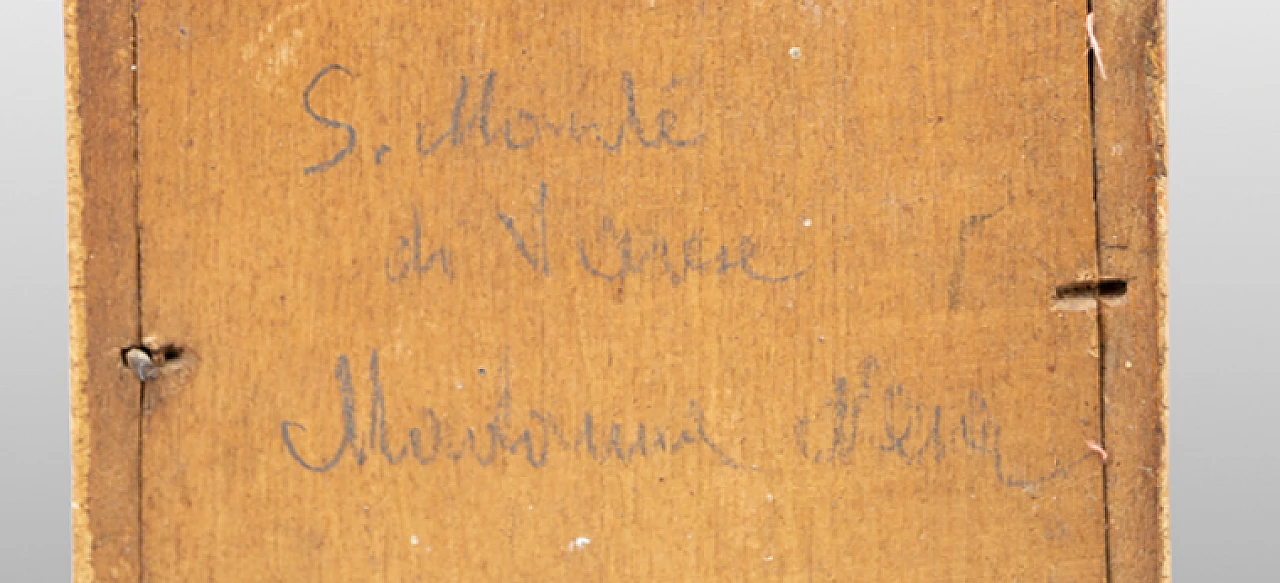 S. Monté
di Varese
Madonna Nera